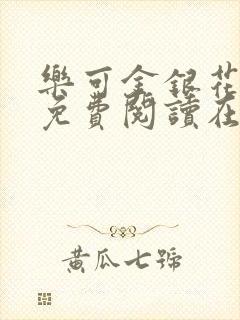 樂可金銀花
免費閱讀在
黃瓜七號